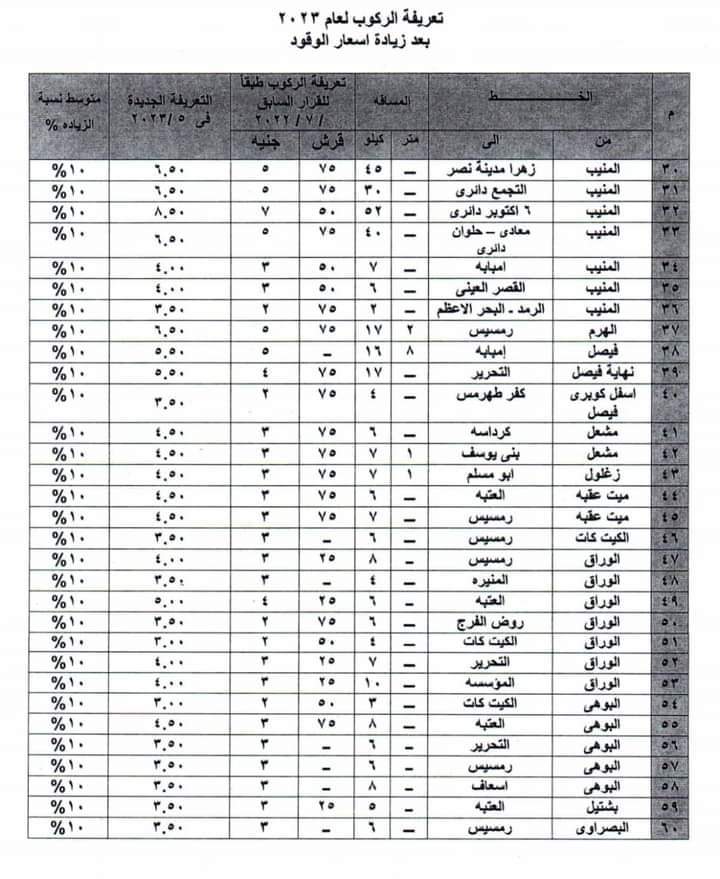 تعريفة الركوب لعام ٢٠٢٣
بعد زيادة اسعار الوقود
م | الخـــط | المسافه | تعريفة الركوب طبقاً للقرار السابق ٢٠٢٢/٧/ | التعريفة الجديدة فى ٢٠٢٣/٥ | متوسط نسبة الزياده %
من | الى | متر | كيلو | قرش | جنيه
٣٠ | المنيب | زهرا مدينة نصر | ــ | ٤٥ | ٧٥ | ٥ | ٦,٥٠ | ١٠%
٣١ | المنيب | التجمع دائرى | ــ | ٣٠ | ٧٥ | ٥ | ٦,٥٠ | ١٠%
٣٢ | المنيب | ٦ اكتوبر دائرى | ــ | ٥٢ | ٥٠ | ٧ | ٨,٥٠ | ١٠%
٣٣ | المنيب | معادى – حلوان دائرى | ــ | ٤٠ | ٧٥ | ٥ | ٦,٥٠ | ١٠%
٣٤ | المنيب | امبابه | ــ | ٧ | ٥٠ | ٣ | ٤,٠٠ | ١٠%
٣٥ | المنيب | القصر العينى | ــ | ٦ | ٥٠ | ٣ | ٤,٠٠ | ١٠%
٣٦ | المنيب | الرمد - البحر الاعظم | ــ | ٢ | ٧٥ | ٢ | ٣,٥٠ | ١٠%
٣٧ | الهرم | رمسيس | ٢ | ١٧ | ٧٥ | ٥ | ٦,٥٠ | ١٠%
٣٨ | فيصل | إمبابه | ٨ | ١٦ | - | ٥ | ٥,٥٠ | ١٠%
٣٩ | نهاية فيصل | التحرير | ــ | ١٧ | ٧٥ | ٤ | ٥,٥٠ | ١٠%
٤٠ | اسفل كوبرى فيصل | كفر طهرمس | ــ | ٤ | ٧٥ | ٢ | ٣,٥٠ | ١٠%
٤١ | مشعل | كرداسه | ــ | ٦ | ٧٥ | ٣ | ٤,٥٠ | ١٠%
٤٢ | مشعل | بنى يوسف | ١ | ٧ | ٧٥ | ٣ | ٤,٥٠ | ١٠%
٤٣ | زغلول | ابو مسلم | ١ | ٧ | ٧٥ | ٣ | ٤,٥٠ | ١٠%
٤٤ | ميت عقبه | العتبه | ــ | ٦ | ٧٥ | ٣ | ٤,٥٠ | ١٠%
٤٥ | ميت عقبه | رمسيس | ــ | ٧ | ٧٥ | ٣ | ٤,٥٠ | ١٠%
٤٦ | الكيت كات | رمسيس | ــ | ٦ | - | ٣ | ٣,٥٠ | ١٠%
٤٧ | الوراق | رمسيس | ــ | ٨ | ٢٥ | ٣ | ٤,٠٠ | ١٠%
٤٨ | الوراق | المنيره | ــ | ٤ | - | ٣ | ٣,٥٠ | ١٠%
٤٩ | الوراق | العتبه | ــ | ٦ | ٢٥ | ٤ | ٥,٠٠ | ١٠%
٥٠ | الوراق | روض الفرج | ــ | ٦ | ٧٥ | ٢ | ٣,٥٠ | ١٠%
٥١ | الوراق | الكيت كات | ــ | ٤ | ٥٠ | ٢ | ٣,٠٠ | ١٠%
٥٢ | الوراق | التحرير | ــ | ٧ | ٢٥ | ٣ | ٤,٠٠ | ١٠%
٥٣ | الوراق | المؤسسه | ــ | ١٠ | ٢٥ | ٣ | ٤,٠٠ | ١٠%
٥٤ | البوهى | الكيت كات | ــ | ٣ | ٥٠ | ٢ | ٣,٠٠ | ١٠%
٥٥ | البوهى | العتبه | ــ | ٨ | ٧٥ | ٣ | ٤,٥٠ | ١٠%
٥٦ | البوهى | التحرير | ــ | ٦ | - | ٣ | ٣,٥٠ | ١٠%
٥٧ | البوهى | رمسيس | ــ | ٦ | - | ٣ | ٣,٥٠ | ١٠%
٥٨ | البوهى | اسعاف | ــ | ٨ | - | ٣ | ٣,٥٠ | ١٠%
٥٩ | بشتيل | العتبه | ــ | ٥ | ٢٥ | ٣ | ٣,٥٠ | ١٠%
٦٠ | البصراوى | رمسيس | ــ | ٦ | - | ٣ | ٣,٥٠ | ١٠%